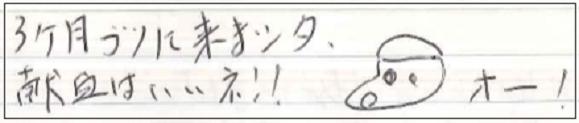 3ケ月ブリに来まシタ、
献血はいいネ!! オー!